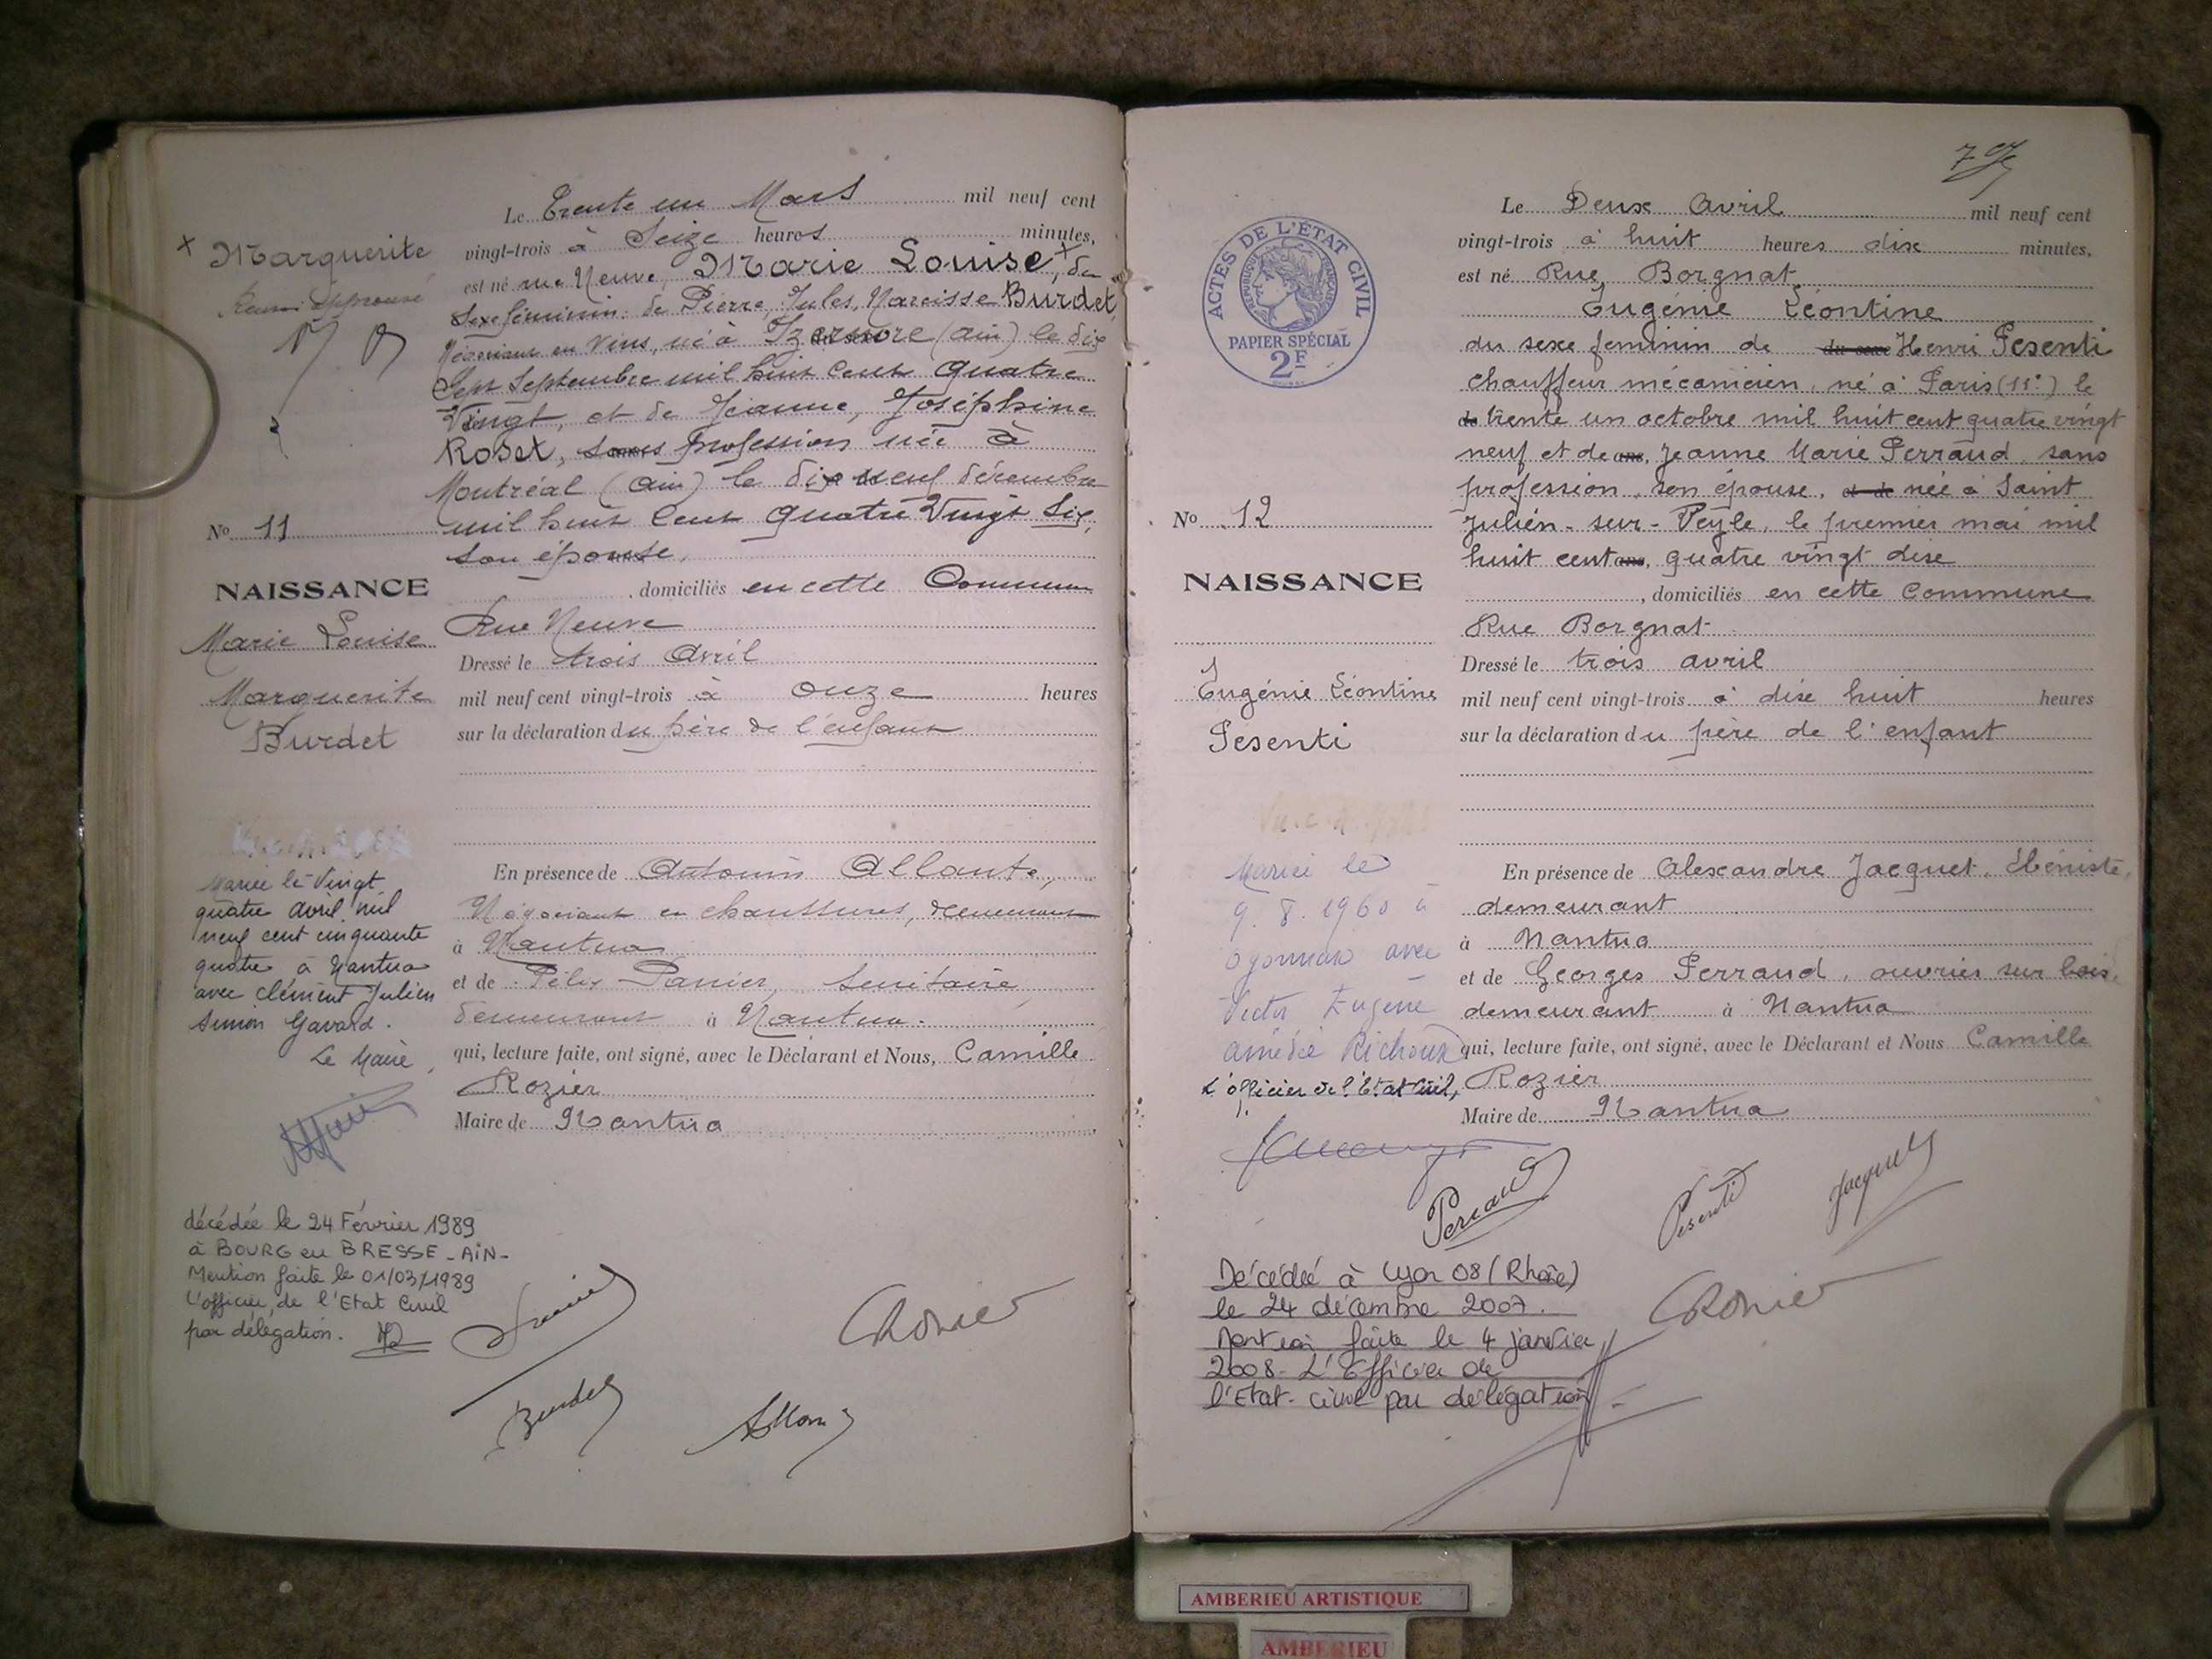 Le Trente un Mars mil neuf cent
vingt-trois à Seize heures minutes,
est né rue Neuve, Marie Louise +, du
Sexe féminin de Pierre, Jules, Narcisse Burdet,
Négociant en Vins, né à Izernore (ain) le dix
Sept Septembre mil huit Cent Quatre
Vingt, et de Jeanne, Joséphine
Roset, sans profession née à
Montréal (ain) le dix neuf décembre
mil huit Cent Quatre Vingt Six,
son épouse,
, domiciliés en cette Commune
Rue Neuve
Dressé le trois Avril
mil neuf cent vingt-trois à onze heures
sur la déclaration du père de l'enfant
En présence de Antonin Allante,
Négociant en chaussures, demeurant
à Nantua
et de Félix Panier,
demeurant à Nantua.
qui, lecture faite, ont signé, avec le Déclarant et Nous, Camille
Rozier
Maire de Nantua
+ Marguerite
No 11
NAISSANCE
Marie Louise
Marguerite
Burdet
Mariée le Vingt
quatre avril mil
neuf cent cinquante
quatre à Nantua
avec Clément Julien
Simon Gavard.
Le Maire,
décédée le 24 Février 1989
à BOURG en BRESSE - AIN -
Mention faite le 01/03/1989
L'officier de l'Etat Civil
par délégation.
Burdet
CRozier
ACTES DE L'ÉTAT CIVIL
RÉPUBLIQUE FRANÇAISE
PAPIER SPÉCIAL
2F
Le Deux Avril mil neuf cent
vingt-trois à huit heures dix minutes,
est né Rue Borgnat
Eugénie Léontine
du sexe feminin de du sexe Henri Pesenti
chauffeur mécanicien, né à Paris (11e) le
trente un octobre mil huit cent quatre vingt
neuf et de ans, Jeanne Marie Perraud, sans
profession, son épouse, et de née à Saint
Julien-sur-Veyle, le premier mai mil
huit cent ans, quatre vingt dix
, domiciliés en cette Commune
Rue Borgnat
Dressé le trois avril
mil neuf cent vingt-trois à dix huit heures
sur la déclaration du père de l'enfant
En présence de Alexandre Jacquet, Ebéniste,
demeurant
à Nantua
et de Georges Perraud, ouvrier sur bois,
demeurant à Nantua
qui, lecture faite, ont signé, avec le Déclarant et Nous Camille
Rozier
Maire de Nantua
No 12
NAISSANCE
Eugénie Léontine
Pesenti
Mariée le
9. 8. 1960 à
Oyonnax avec
Victor Eugène
Amédée Richoux
L'officier de l'Etat Civil,
Perraud
Pesenti
Jacquet
CRozier
Décédée à Lyon 08 (Rhône)
le 24 décembre 2007.
Mention faite le 4 janvier
2008 - L'Officier de
l'Etat-civil par délégation
AMBERIEU ARTISTIQUE
AMBERIEU